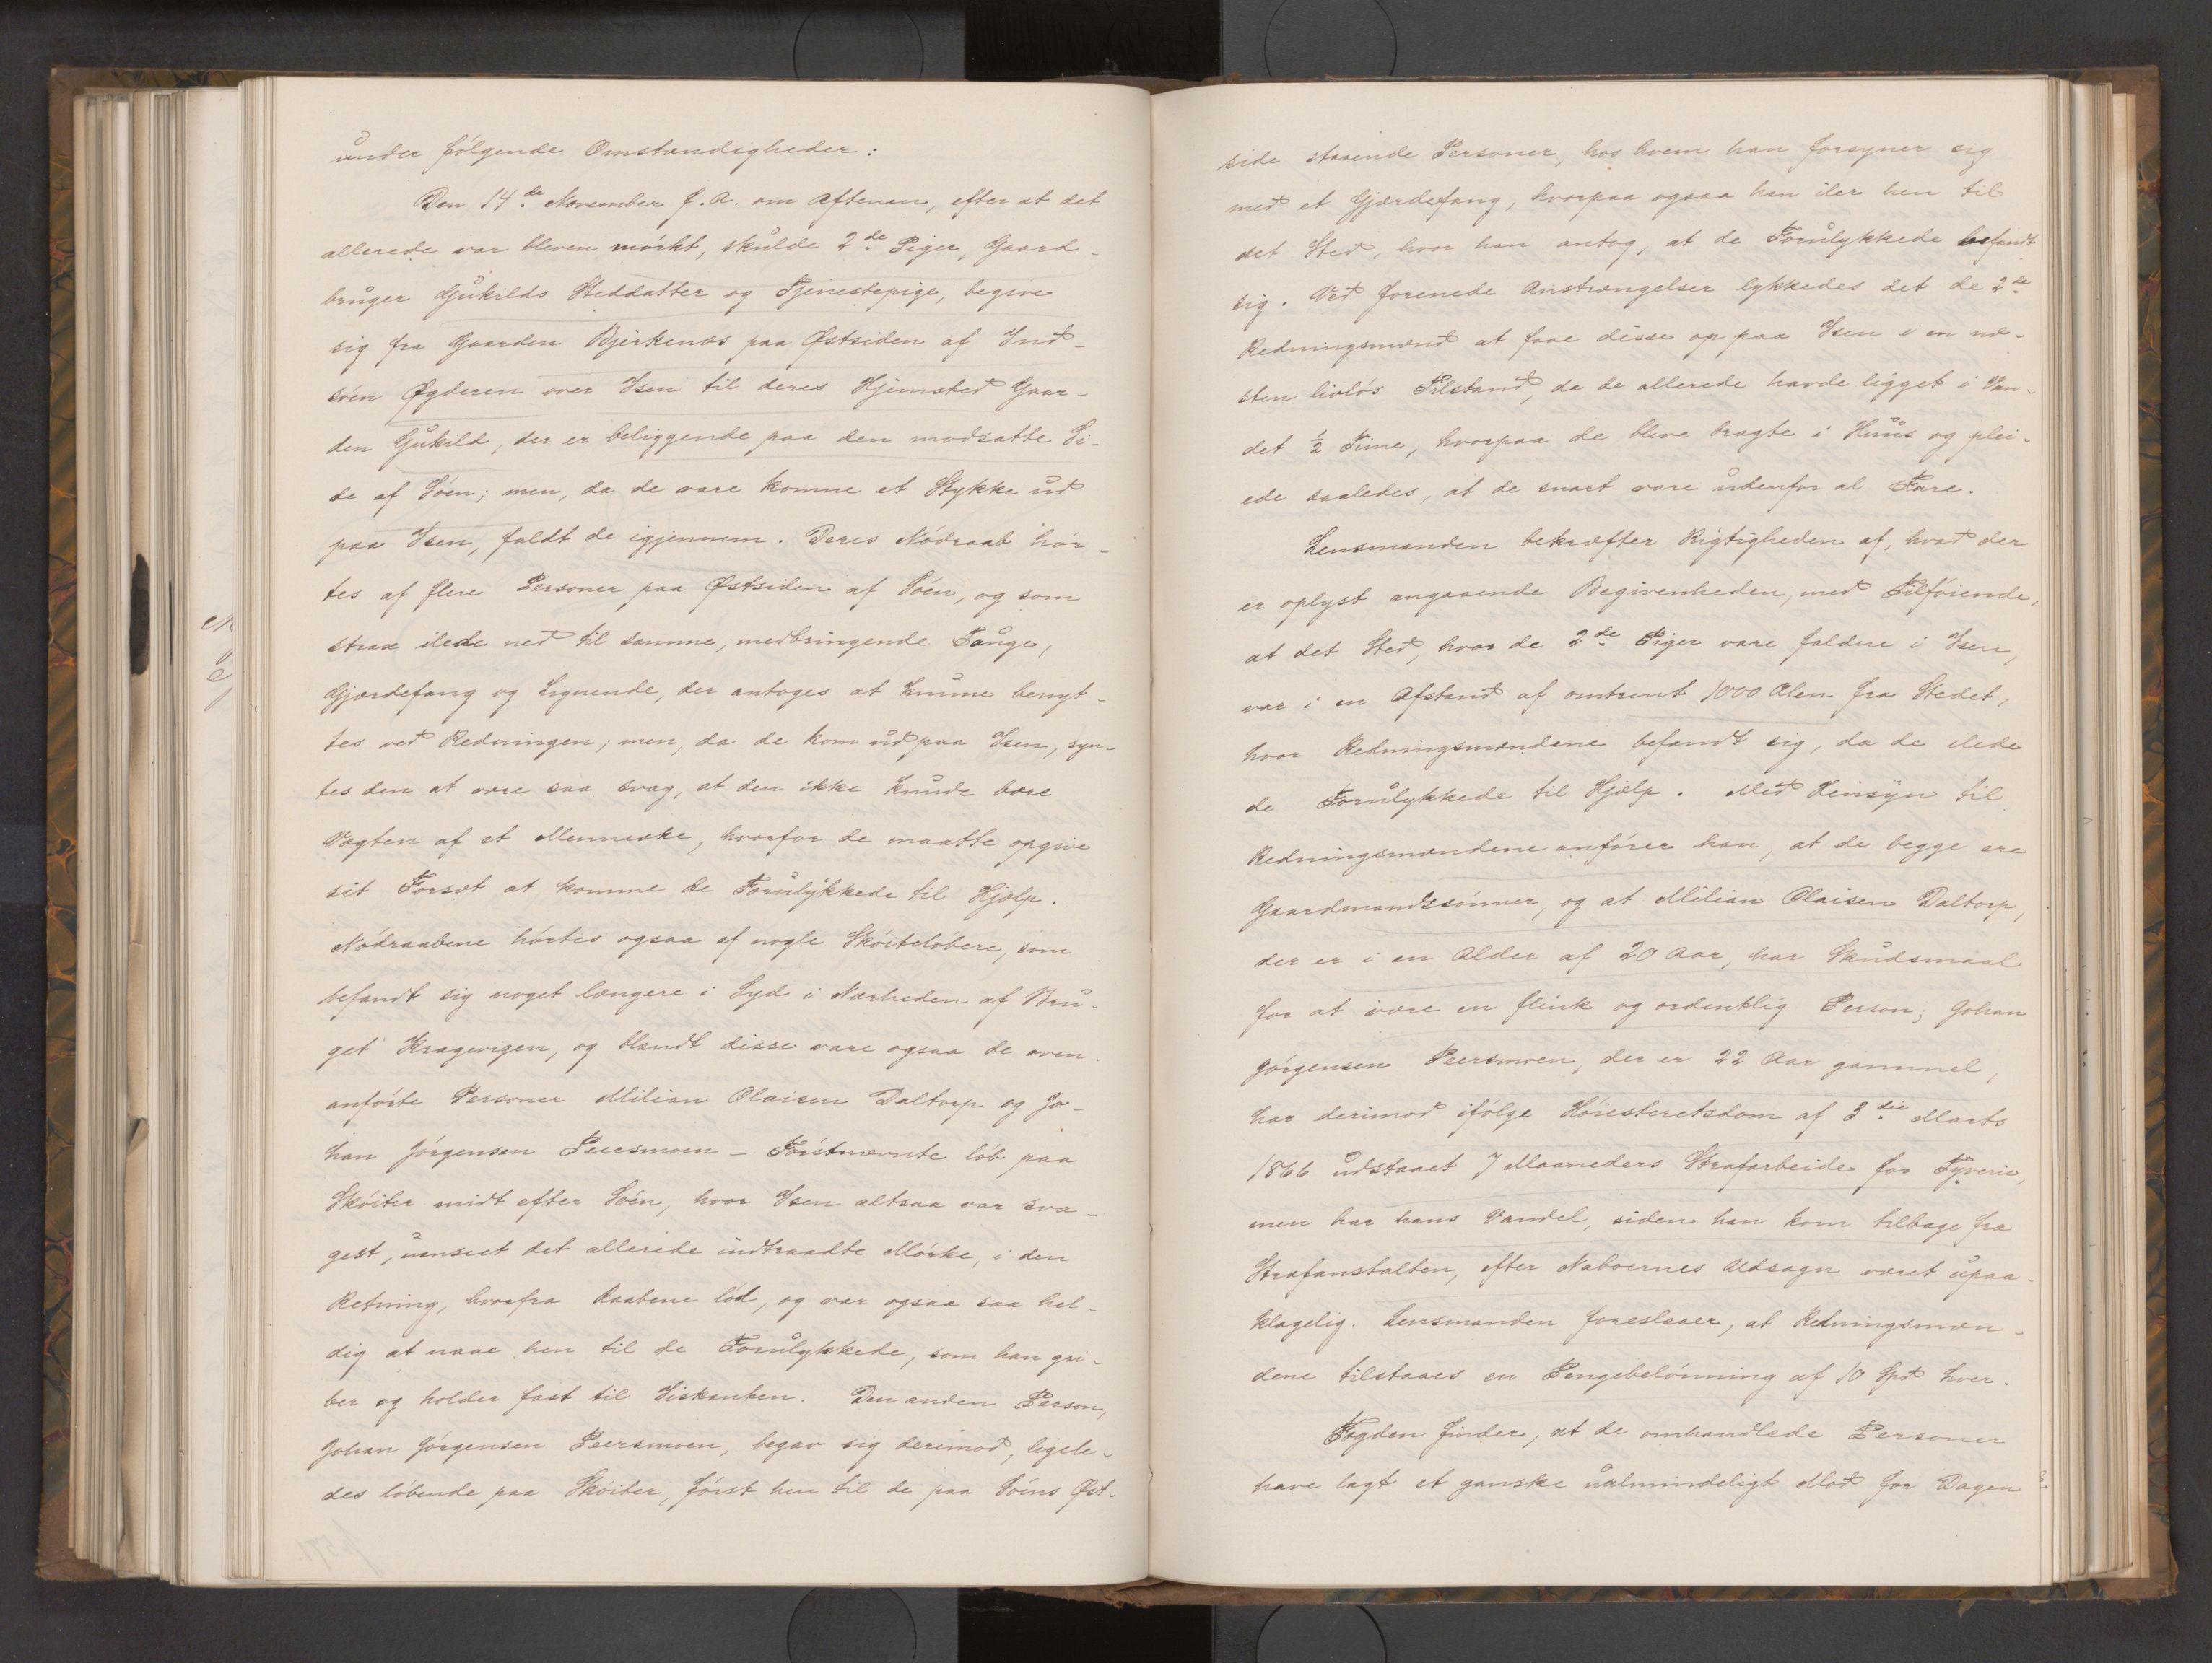 under følgende Omstændigheder:
Den 14de November f. A. om Aftenen, efter at det
allerede var bleven mörkt, skulde 2de Piger, Gaard-
bruger Gjukilds Steddatter og Tjenestepige, begive
sig fra Gaarden Bjerkenæs paa Østsiden af Ind-
söen Øgderen over Isen til deres Hjemsted Gaar-
den Gjukild, der er beliggende paa den modsatte Si-
de af Söen; men, da de vare komne et Stykke ud
paa Isen, faldt de igjennem. Deres Nödraab hör-
tes af flere Personer paa Østsiden af Söen, og som
strax ilede ned til samme, medbringende Tauge,
Gjærdefang og Lignende, der antoges at kunne benyt-
tes ved Redningen; men, da de kom ud paa Isen, syn-
tes den at være saa svag, at den ikke kunde bære
Vægten af et Menneske, hvorfor de maatte opgive
sit Forsæt at komme de Forulykkede til Hjælp.
Nödraabene hörtes ogsaa af nogle Sköitelöbere, som
befandt sig noget længere i Syd i Nærheden af Bru-
get Kragevigen, og blandt disse vare ogsaa de oven-
anförte Personer Milian Olaisen Daltorp og Jo-
han Jörgensen Peersmoen - Förstnævnte löb paa
Sköiter midt efter Söen, hvor Isen altsaa var sva-
gest, uanseet det allerede indtraadte Mörke, i den
Retning, hvorfra Raabene löd, og var ogsaa saa hel-
dig at naae hen til de Forulykkede, som han gri-
ber og holder fast til Iiskanten. Den anden Person,
Johan Jörgensen Peersmoen, begav sig derimod, ligele-
des löbende paa Sköiter, först hen til de paa Söens Øst-
side staaende Personer, hos hvem han forsyner sig
med et Gjærdefang, hvorpaa ogsaa han iler hen til
det Sted, hvor han antog, at de Forulykkede befandt
sig. Ved forenede Anstrængelser lykkedes det de 2de
Redningsmænd at faae disse op paa Isen i en næ-
sten livlös Tilstand, da de allerede havde ligget i Van-
det ½ Time, hvorpaa de bleve bragte i Huus og plei-
ede saaledes, at de snart vare udenfor al Fare.
Lensmanden bekræfter Rigtigheden af, hvad der
er oplyst angaaende Begivenheden, med Tilföiende,
at det Sted, hvor de 2de Piger vare faldne i Isen,
var i en Afstand af omtrent 1000 Alen fra Stedet,
hvor Redningsmændene befandt sig, da de ilede
de Forulykkede til Hjælp. Med Hensyn til
Redningsmændene anförer han, at de begge ere
Gaardmandssönner, og at Milian Olaisen Daltorp,
der er i en Alder af 20 Aar, har Skudsmaal
for at være en flink og ordentlig Person; Johan
Jörgensen Peersmoen, der er 22 Aar gammel,
har derimod ifölge Höiesteretsdom af 3die Marts
1866 udstaaet 7 Maaneders Strafarbeide for Tyverie,
men har hans Vandel, siden han kom tilbage fra
Strafanstalten, efter Naboernes Udsagn været upaa-
klagelig. Lensmanden foreslaaer, at Redningsmæn-
dene tilstaaes en Pengebelönning af 10 Spd hver.
Fogden finder, at de omhandlede Personer
have lagt et ganske ualmindeligt Mod for Dagen